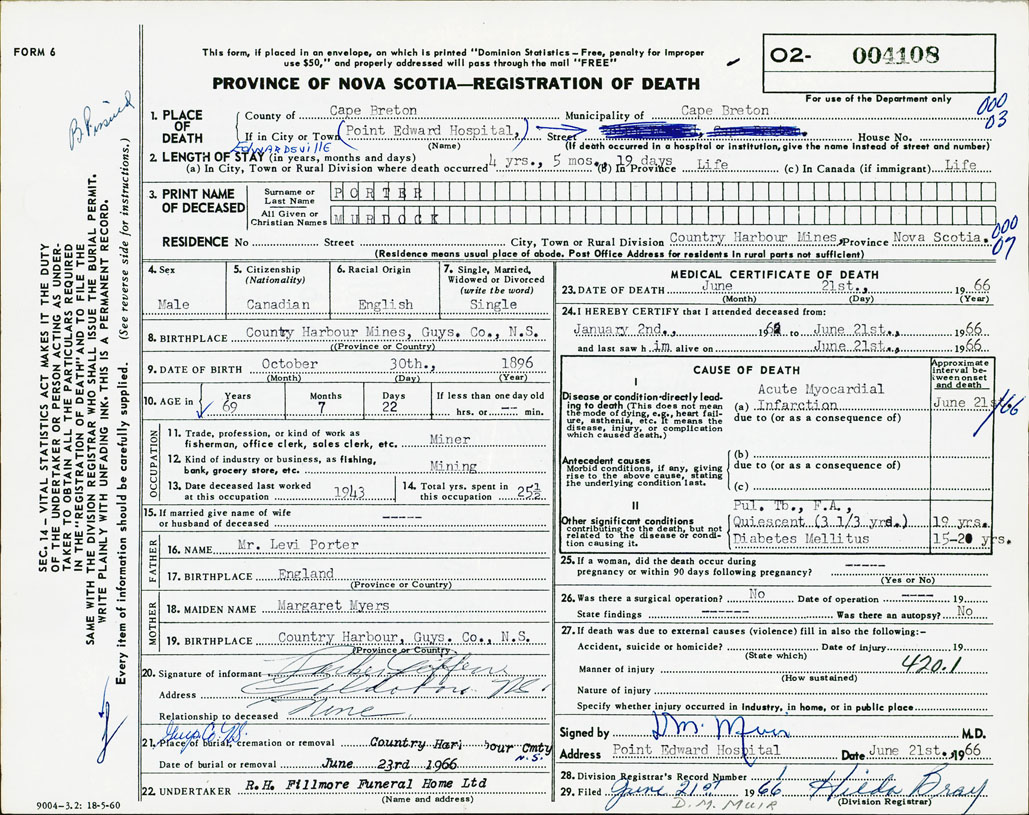 FORM 6
This form, if placed in an envelope, on which is printed "Dominion Statistics – Free, penalty for improper
use $50," and properly addressed will pass through the mail "FREE"
PROVINCE OF NOVA SCOTIA—REGISTRATION OF DEATH
O2- 004108
For use of the Department only
000
03
1. PLACE OF DEATH
County of Cape Breton Municipality of Cape Breton
If in City or Town (Point Edward Hospital,) Street House No.
(Name) (If death occurred in a hospital or institution, give the name instead of street and number)
EDWARDSVILLE
2. LENGTH OF STAY (in years, months and days)
(a) In City, Town or Rural Division where death occurred 4 yrs., 5 mos., 19 days (b) In Province Life (c) In Canada (if immigrant) Life
3. PRINT NAME OF DECEASED
Surname or Last Name PORTER
All Given or Christian Names MURDOCK
RESIDENCE No Street City, Town or Rural Division Country Harbour Mines, Province Nova Scotia.
(Residence means usual place of abode. Post Office Address for residents in rural parts not sufficient)
000
07
4. Sex
Male
5. Citizenship
(Nationality)
Canadian
6. Racial Origin
English
7. Single, Married,
Widowed or Divorced
(write the word)
Single
8. BIRTHPLACE Country Harbour Mines, Guys. Co., N.S.
(Province or Country)
9. DATE OF BIRTH October 30th., 1896
(Month) (Day) (Year)
10. AGE in Years Months Days If less than one day old
69 7 22 hrs. or -- min.
OCCUPATION
11. Trade, profession, or kind of work as
fisherman, office clerk, sales clerk, etc. Miner
12. Kind of industry or business, as fishing,
bank, grocery store, etc. Mining
13. Date deceased last worked
at this occupation 1943
14. Total yrs. spent in
this occupation 25½
15. If married give name of wife
or husband of deceased -----
FATHER
16. NAME Mr. Levi Porter
17. BIRTHPLACE England
(Province or Country)
MOTHER
18. MAIDEN NAME Margaret Myers
19. BIRTHPLACE Country Harbour, Guys. Co., N.S.
(Province or Country)
20. Signature of informant
Address
Relationship to deceased
21. Place of burial, cremation or removal Country Harbour Cmty
N.S.
Date of burial or removal June 23rd 1966
22. UNDERTAKER R.H. Fillmore Funeral Home Ltd
(Name and address)
9004-3.2: 18-5-60
MEDICAL CERTIFICATE OF DEATH
23. DATE OF DEATH June 21st., 1966
(Month) (Day) (Year)
24. I HEREBY CERTIFY that I attended deceased from:
January 2nd., 1962 to June 21st., 1966
and last saw him alive on June 21st., 1966
CAUSE OF DEATH
Approximate
interval be-
tween onset
and death
I
Disease or condition directly lead-
ing to death (This does not mean
the mode of dying, e.g., heart fail-
ure, asthenia, etc. It means the
disease, injury, or complication
which caused death.)
Acute Myocardial
(a) Infarction
due to (or as a consequence of)
June 21st/66
Antecedent causes
Morbid conditions, if any, giving
rise to the above cause, stating
the underlying condition last.
(b)
due to (or as a consequence of)
(c)
II
Other significant conditions
contributing to the death, but not
related to the disease or condi-
tion causing it.
Pul. Tb., F.A.,
Quiescent (3 1/3 yrs.) 19 yrs.
Diabetes Mellitus 15-20 yrs.
25. If a woman, did the death occur during
pregnancy or within 90 days following pregnancy? -----
(Yes or No)
26. Was there a surgical operation? No Date of operation ---- 19
State findings ------ Was there an autopsy? No
27. If death was due to external causes (violence) fill in also the following:-
Accident, suicide or homicide? Date of injury 19
(State which)
Manner of injury 420.1
(How sustained)
Nature of injury
Specify whether injury occurred in industry, in home, or in public place
Signed by D.M. Muir M.D.
Address Point Edward Hospital Date June 21st. 1966
28. Division Registrar's Record Number 1
29. Filed June 21st 1966 Hilda Bray
D. M. MUIR (Division Registrar)
SEC. 14 – VITAL STATISTICS ACT MAKES IT THE DUTY
OF THE UNDERTAKER OR PERSON ACTING AS UNDER-
TAKER TO OBTAIN ALL THE PARTICULARS REQUIRED
IN THE "REGISTRATION OF DEATH" AND TO FILE THE
SAME WITH THE DIVISION REGISTRAR WHO SHALL ISSUE THE BURIAL PERMIT.
WRITE PLAINLY WITH UNFADING INK. THIS IS A PERMANENT RECORD.
Every item of information should be carefully supplied. (See reverse side for instructions.)